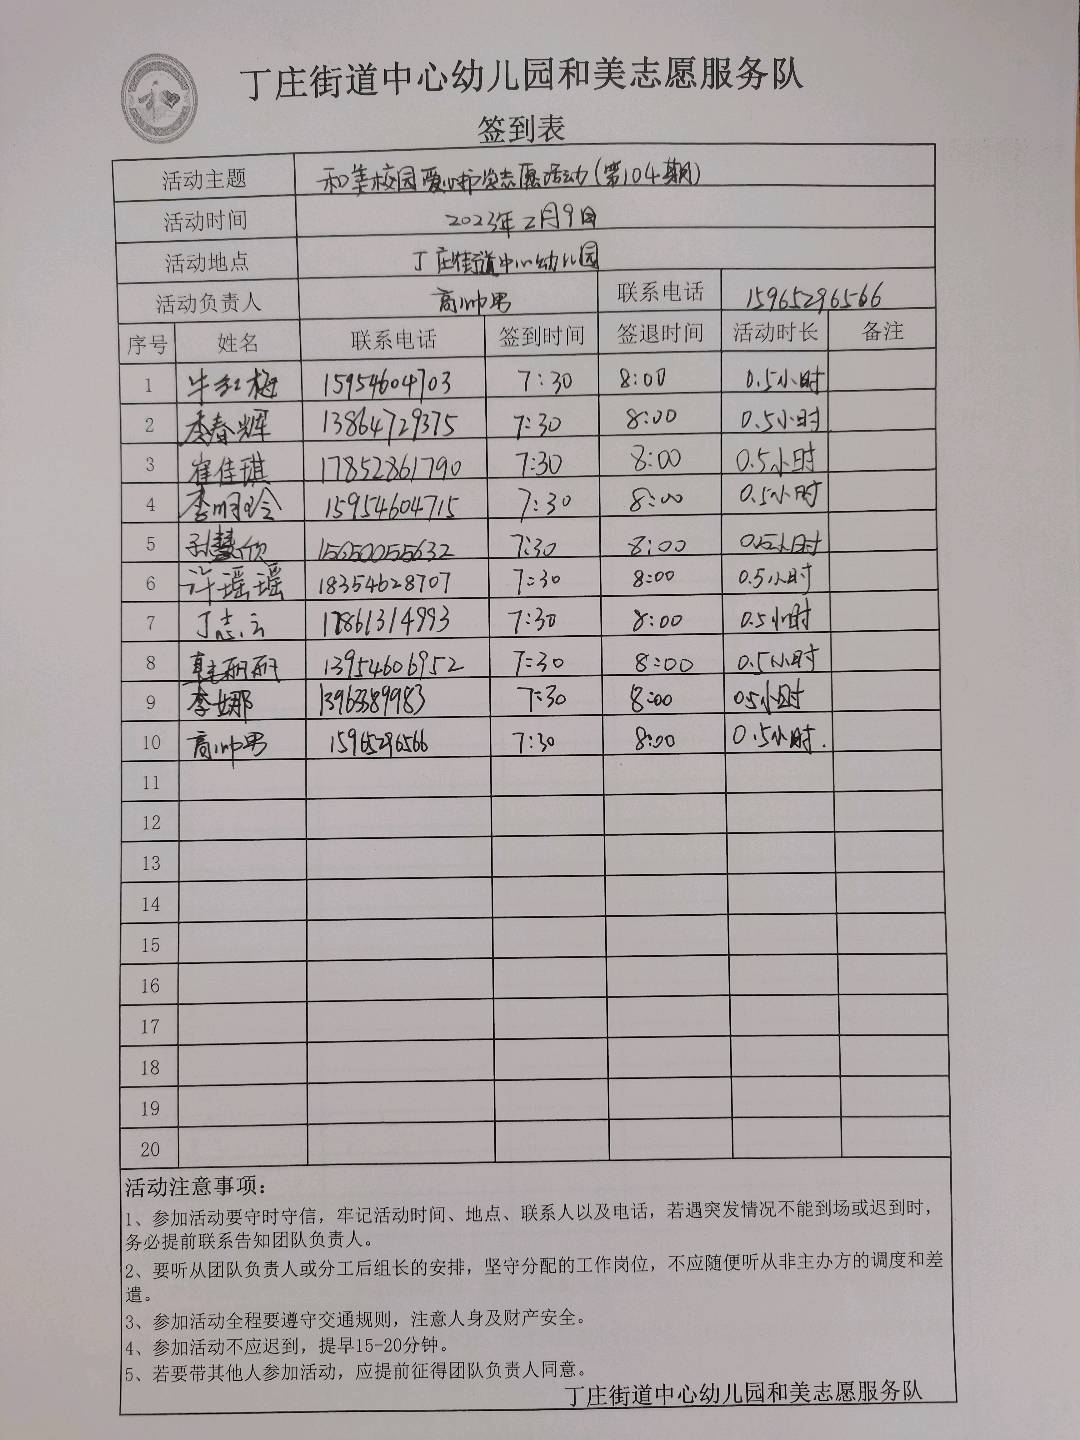 丁庄街道中心幼儿园和美志愿服务队
签到表
活动主题 和美校园爱心护学志愿活动(第104期)
活动时间 2023年2月9日
活动地点 丁庄街道中心幼儿园
活动负责人 高帅男 联系电话 15965296566
序号 姓名 联系电话 签到时间 签退时间 活动时长 备注
1 牛红梅 15954604703 7:30 8:00 0.5小时
2 李春辉 13864729375 7:30 8:00 0.5小时
3 崔佳琪 17852861790 7:30 8:00 0.5小时
4 李明玲 15954604715 7:30 8:00 0.5小时
5 7:30 8:00 0.5小时
6 许瑶瑶 18354628707 7:30 8:00 0.5小时
7 丁志云 17861314993 7:30 8:00 0.5小时
8 韩丽丽 13954606952 7:30 8:00 0.5小时
9 李娜 13963389983 7:30 8:00 0.5小时
10 高帅男 15965296566 7:30 8:00 0.5小时.
11
12
13
14
15
16
17
18
19
20
活动注意事项：
1、参加活动要守时守信，牢记活动时间、地点、联系人以及电话，若遇突发情况不能到场或迟到时，
务必提前联系告知团队负责人。
2、要听从团队负责人或分工后组长的安排，坚守分配的工作岗位，不应随便听从非主办方的调度和差
遣。
3、参加活动全程要遵守交通规则，注意人身及财产安全。
4、参加活动不应迟到，提早15-20分钟。
5、若要带其他人参加活动，应提前征得团队负责人同意。
丁庄街道中心幼儿园和美志愿服务队